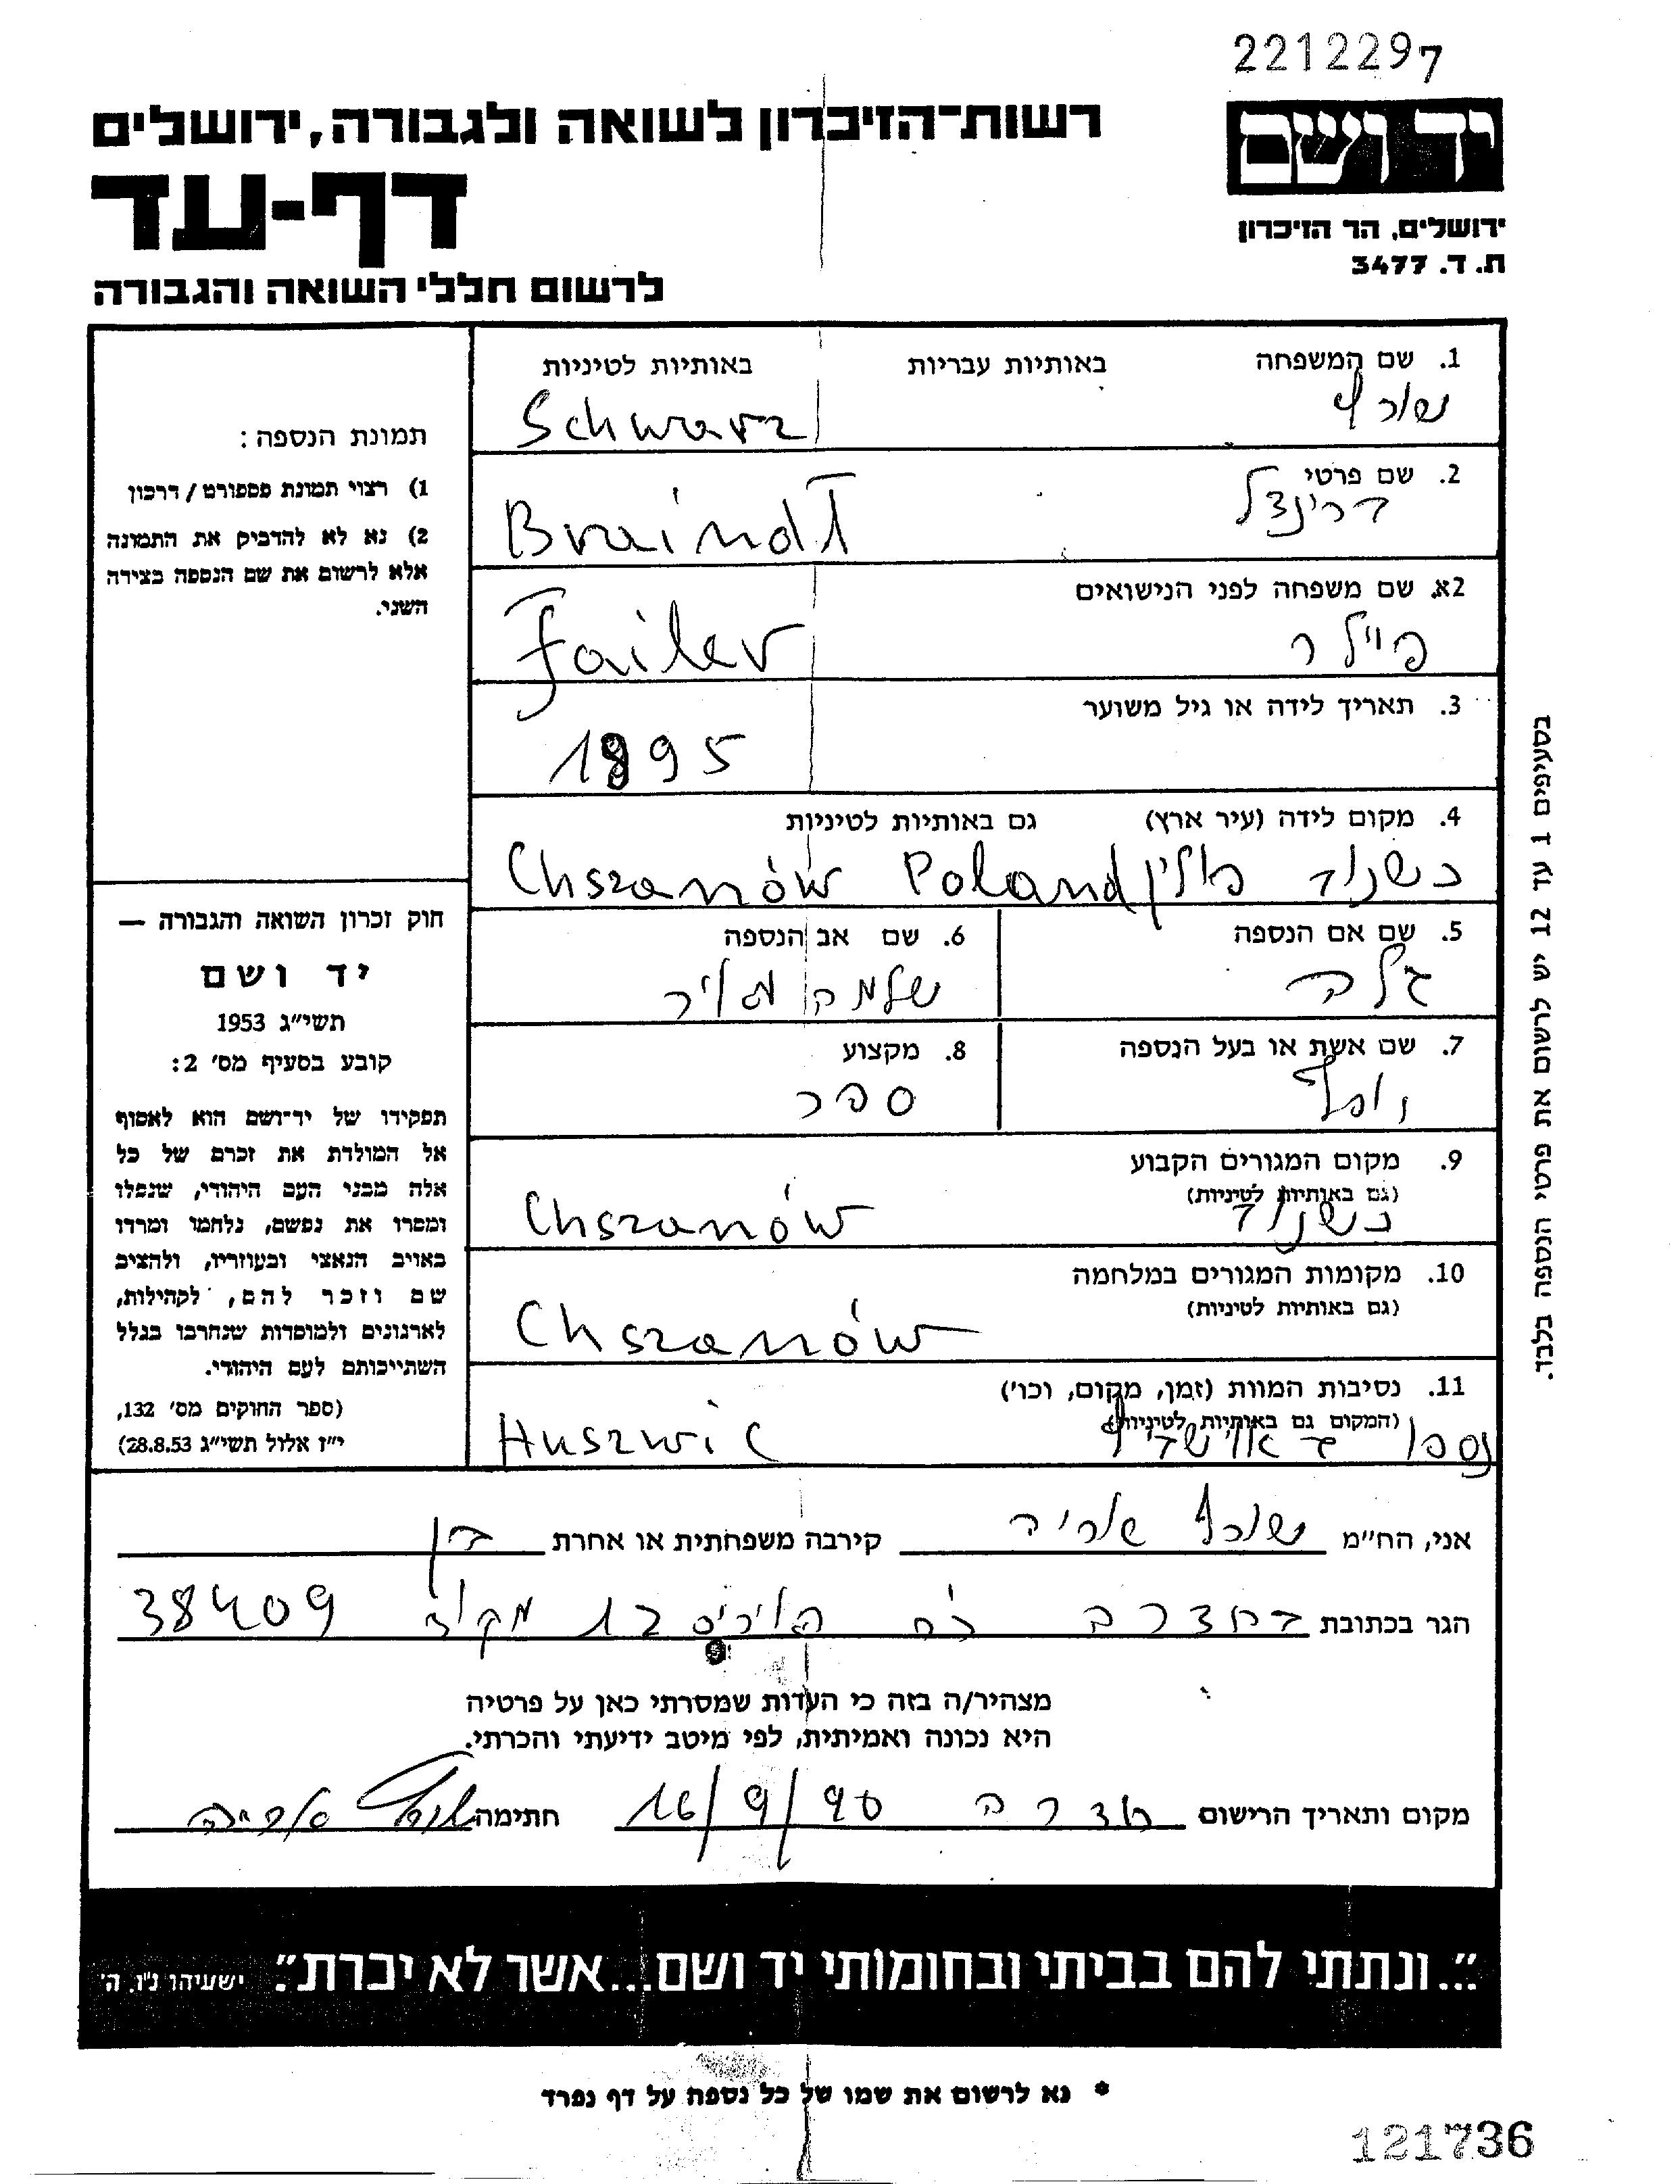 2212297
יד ושם
ירושלים, הר הזיכרון
ת. ד. 3477
רשות-הזיכרון לשואה ולגבורה, ירושלים
דף-עד
לרשום חללי השואה והגבורה
1. שם המשפחה באותיות עבריות באותיות לטיניות
שורץ Schwarz
2. שם פרטי
ברינדל Braindl
2א. שם משפחה לפני הנישואים
פיילר Failer
3. תאריך לידה או גיל משוער
1895
4. מקום לידה (עיר ארץ) גם באותיות לטיניות
כשנוב פולין Chszanów Poland
5. שם אם הנספה 6. שם אב הנספה
שלמה מאיר
7. שם אשת או בעל הנספה 8. מקצוע
וולף ספר
9. מקום המגורים הקבוע
(גם באותיות לטיניות)
כשנוב Chszanów
10. מקומות המגורים במלחמה
(גם באותיות לטיניות)
Chszanów
11. נסיבות המוות (זמן, מקום, וכו')
(המקום גם באותיות לטיניות)
Auszwic
תמונת הנספה:
1) רצוי תמונת פספורט / דרכון
2) נא לא להדביק את התמונה
אלא לרשום את שם הנספה בצידה
השני.
חוק זכרון השואה והגבורה —
יד ושם
תשי״ג 1953
קובע בסעיף מס׳ 2:
תפקידו של יד־ושם הוא לאסוף
אל המולדת את זכרם של כל
אלה מבני העם היהודי, שנפלו
ומסרו את נפשם, נלחמו ומרדו
באויב הנאצי ובעוזריו, ולהציב
שם וזכר להם, לקהילות,
לארגונים ולמוסדות שנחרבו בגלל
השתייכותם לעם היהודי.
(ספר החוקים מס׳ 132,
י״ז אלול תשי״ג 28.8.53)
בסעיפים 1 עד 12 יש לרשום את פרטי הנספה בלבד.
אני, הח״מ שורץ אריה קירבה משפחתית או אחרת בן
הגר בכתובת בחדרה 12 מקוד 38409
מצהיר/ה בזה כי העדות שמסרתי כאן על פרטיה
היא נכונה ואמיתית, לפי מיטב ידיעתי והכרתי.
מקום ותאריך הרישום חדרה 16/9/90 חתימה שורץ אריה
״...ונתתי להם בביתי ובחומותי יד ושם...אשר לא יכרת״. ישעיהו נ״ו, ה׳
* נא לרשום את שמו של כל נספה על דף נפרד
121736